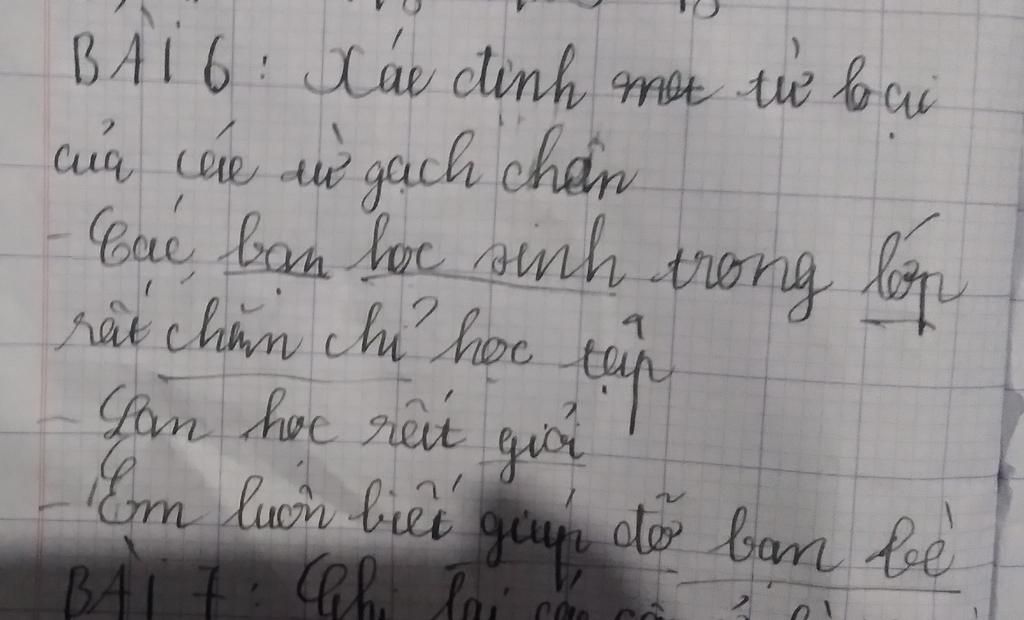 BÀI 6: Xác định một từ loại
của các từ gạch chân
- Các bạn học sinh trong lớp
rất chăm chỉ học tập
- Lan học rất giỏi
- Em luôn biết giúp đỡ bạn bè
BÀI 7: Ghi lại các